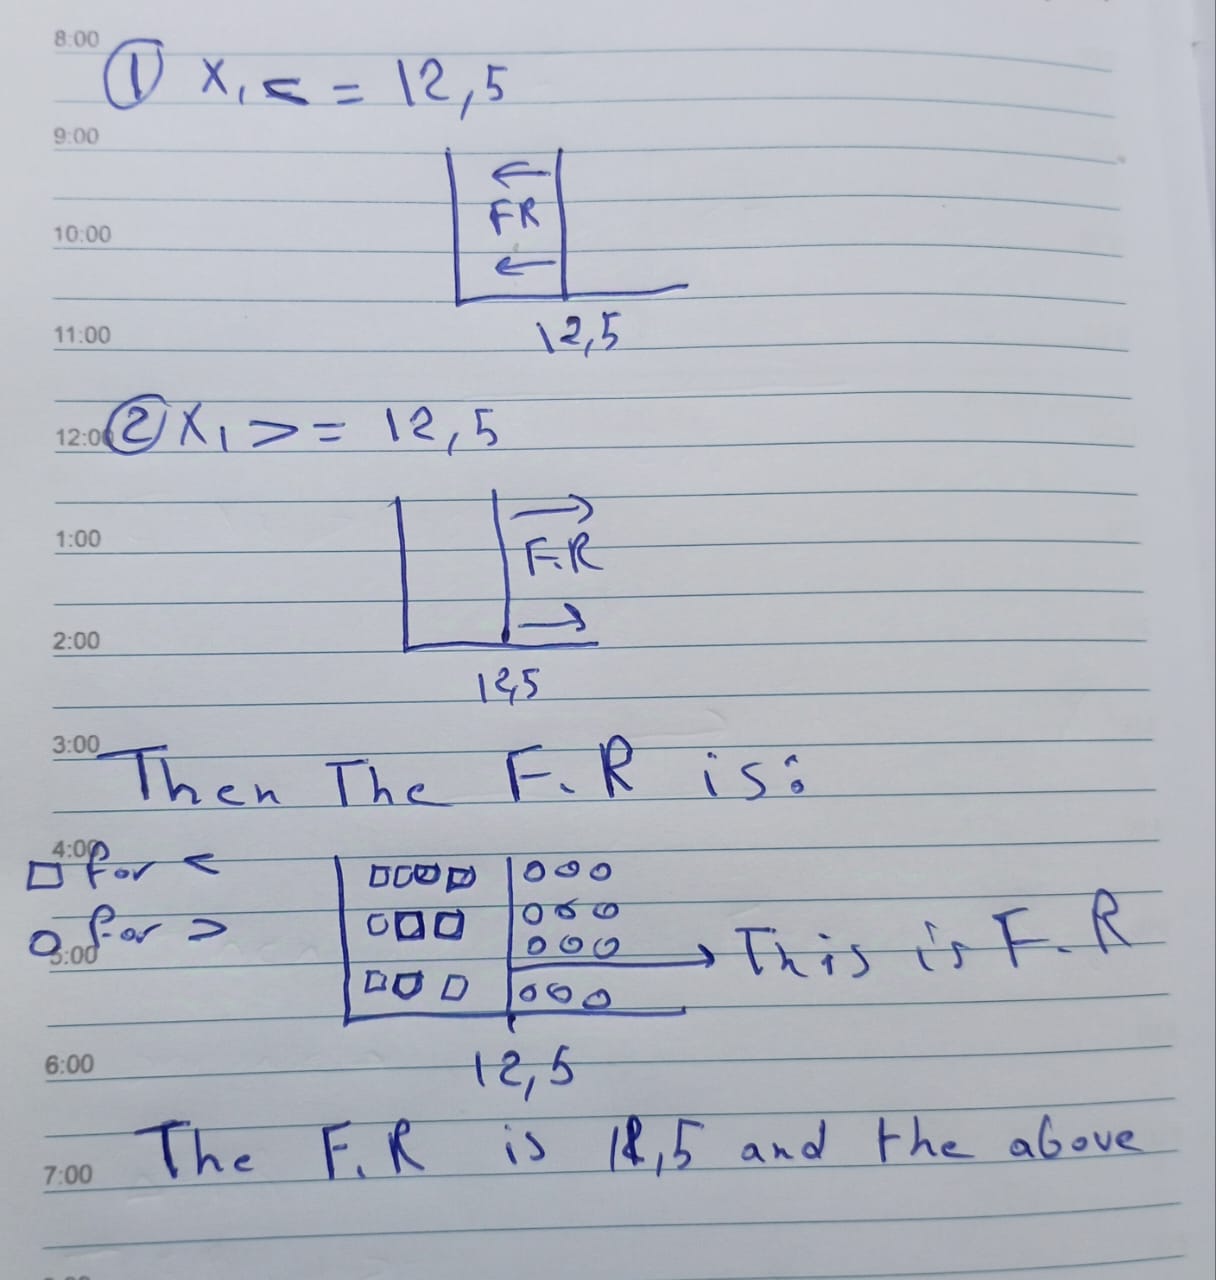 8:00
① X₁ <= 12,5
9:00
FR
10:00
12,5
11:00
12:00 ② X₁ >= 12,5
1:00
F.R
2:00
12,5
3:00
Then The F.R is:
4:00
□ for <
o for >
5:00
This is F.R
12,5
6:00
The F.R is 12,5 and the above
7:00